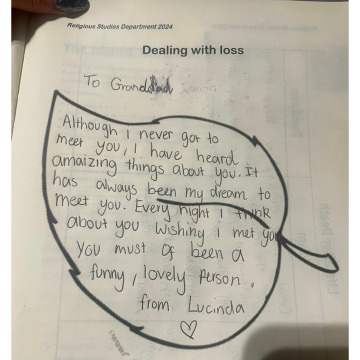 Religious Studies Department 2024
Dealing with loss
To Granddad
Although I never got to
meet you, I have heard
amaizing things about you. It
has always been my dream to
meet you. Every night I think
about you wishing I met you
you must of been a
funny, lovely person.
from Lucinda